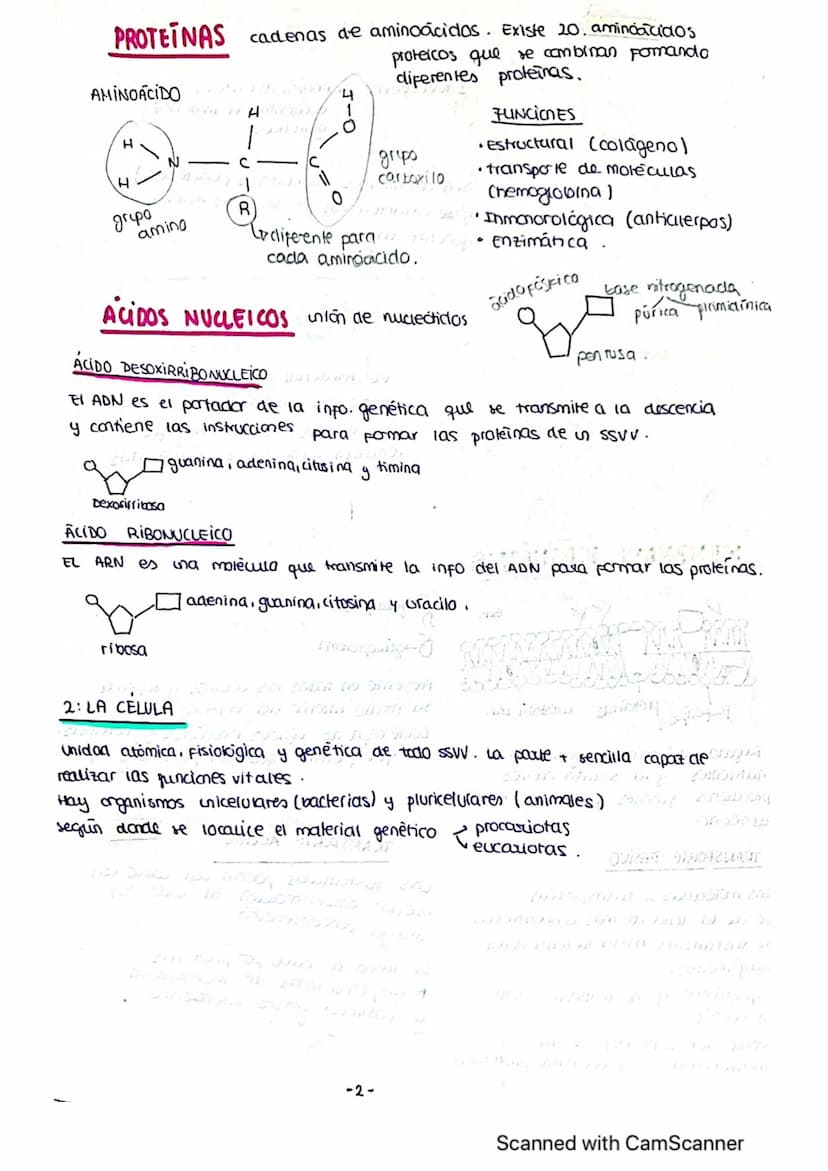 PROTEÍNAS cadenas de aminoácidos. Existe 20 aminoácidos
proteicos que se combinan formando
diferentes proteínas.
AMINOÁCIDO
H
H
N
C
H
R
C
O
H
O
grupo
amino
grupo
carboxilo
diferente para
cada aminoácido.
FUNCIONES
• estructural (colágeno)
• transporte de moléculas
(hemoglobina)
• Inmonorológica (anticuerpos)
• enzimática.
ÁCIDOS NUCLEICOS unión de nucleótidos
ácido fósfico
base nitrogenada
púrica pirimidínica
pentosa.
ÁCIDO DESOXIRRIBONUCLEICO
El ADN es el portador de la info. genética que se transmite a la descencia
y contiene las instrucciones para formar las proteínas de un SSVV.
guanina, adenina, citosina y timina
Dexosirribosa
ÁCIDO RIBONUCLEICO
EL ARN es una molécula que transmite la info del ADN para formar las proteínas.
adenina, guanina, citosina y uracilo.
ribosa
2: LA CÉLULA
Unidad atómica, fisiológica y genética de todo SSVV. La parte + sencilla capaz de
realizar las funciones vitales.
Hay organismos unicelulares (bacterias) y pluricelulares (animales)
según donde se localice el material genético
procariotas
eucariotas.
-2-
Scanned with CamScanner